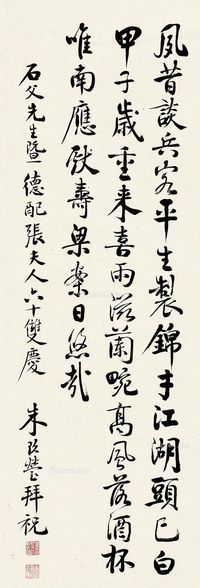 夙昔談兵客平生製錦才江湖頭已白
甲子歲重来喜雨滋蘭畹高風落酒杯
唯南應獻壽梁案日悠哉
石父先生暨德配張夫人六十雙慶
朱玖瑩拜祝